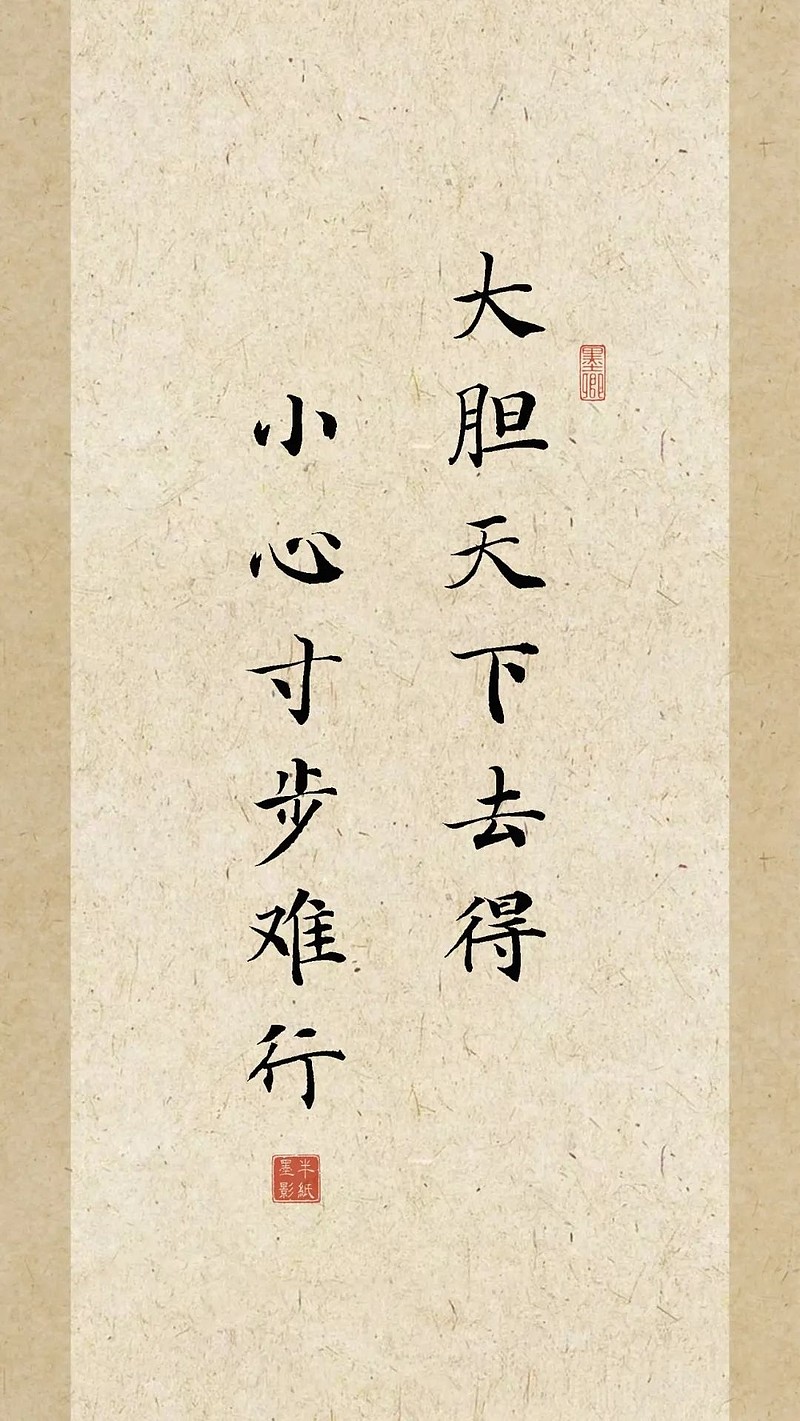 大胆天下去得
小心寸步难行
墨卿
半紙墨影